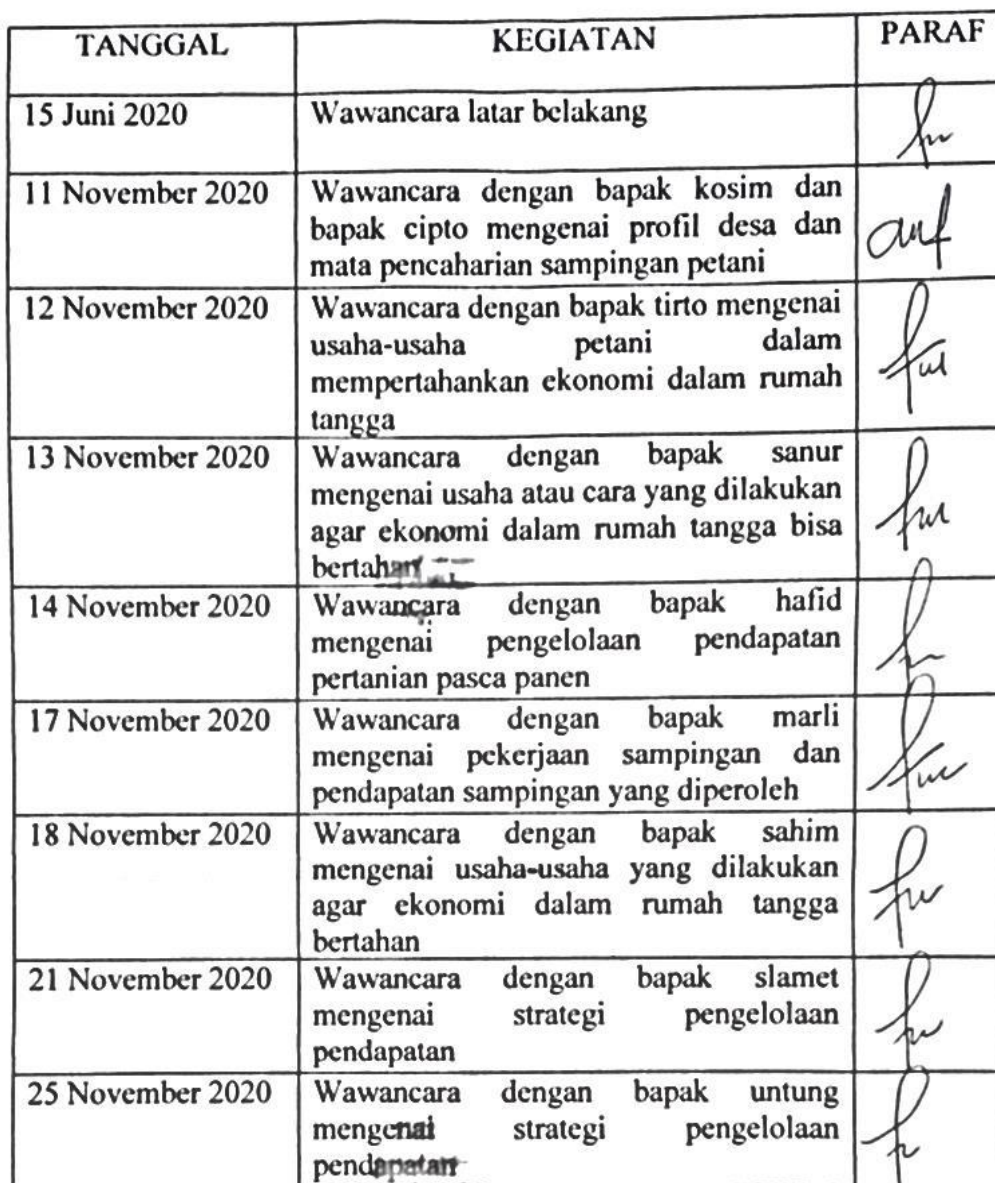 TANGGAL KEGIATAN PARAF
15 Juni 2020 Wawancara latar belakang
11 November 2020 Wawancara dengan bapak kosim dan
bapak cipto mengenai profil desa dan
mata pencaharian sampingan petani
12 November 2020 Wawancara dengan bapak tirto mengenai
usaha-usaha petani dalam
mempertahankan ekonomi dalam rumah
tangga
13 November 2020 Wawancara dengan bapak sanur
mengenai usaha atau cara yang dilakukan
agar ekonomi dalam rumah tangga bisa
bertahan
14 November 2020 Wawancara dengan bapak hafid
mengenai pengelolaan pendapatan
pertanian pasca panen
17 November 2020 Wawancara dengan bapak marli
mengenai pekerjaan sampingan dan
pendapatan sampingan yang diperoleh
18 November 2020 Wawancara dengan bapak sahim
mengenai usaha-usaha yang dilakukan
agar ekonomi dalam rumah tangga
bertahan
21 November 2020 Wawancara dengan bapak slamet
mengenai strategi pengelolaan
pendapatan
25 November 2020 Wawancara dengan bapak untung
mengenai strategi pengelolaan
pendapatan